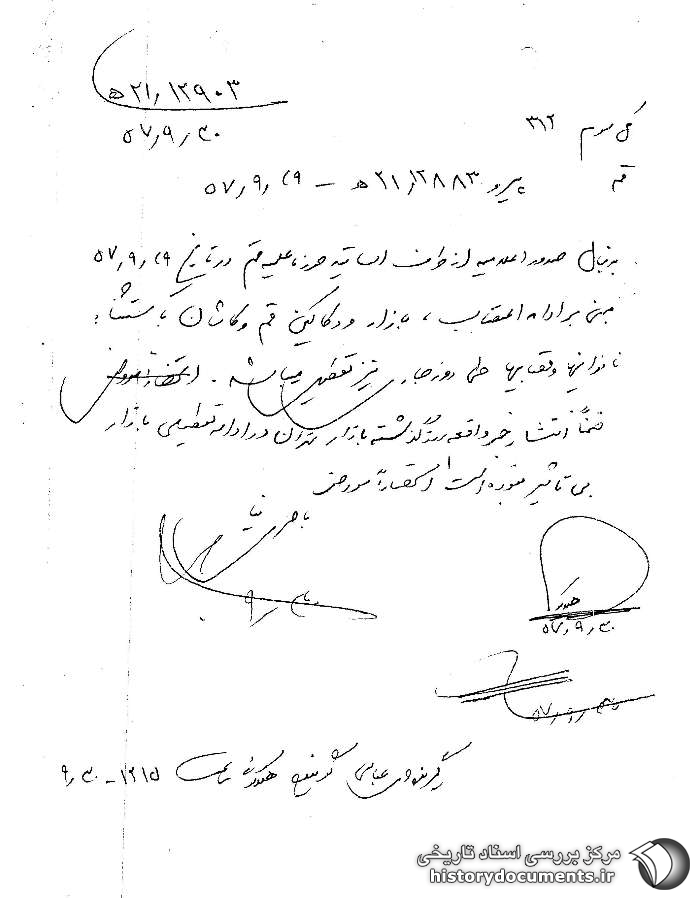 ۲۱/۱۲۹۰۳ ﻫ
۵۷/۹/۳۰
کل سوم ۳۱۲
قم
پیرو ۲۱/۱۲۸۸۳ ﻫ – ۵۷/۹/۲۹
بدنبال صدور اعلامیه از طرف اساتید حوزه علمیه قم در تاریخ ۵۷/۹/۲۹
مبنی بر ادامه اعتصاب، بازار و دکاکین قم و کاشان باستثناء
نانوائیها و قصابیها طی روز جاری نیز تعطیل میباشد.
ضمناً انتشار خبر واقعه روز گذشته بازار تهران در ادامه تعطیلی بازار
بی تاثیر نبوده است استحضاراً معروض
۹/۳۰
۵۷/۹/۳۰
۵۷/۹/۳۰
گیرنده عباسی فرستنده ساعت ۱۲۱۵ - ۹/۳۰
مرکز بررسی اسناد تاریخی
historydocuments.ir